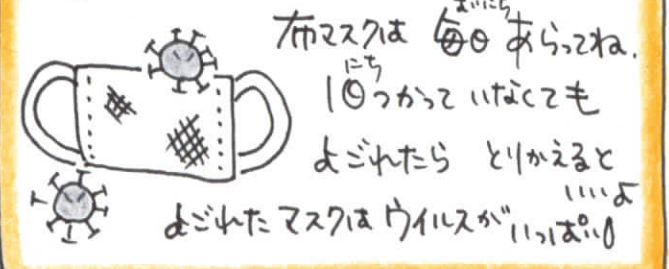 布マスクは 毎日 あらってね.
まいにち
1日つかって いなくても
にち
よごれたら とりかえると
いいよ
よごれた マスクは ウイルスが いっぱい!